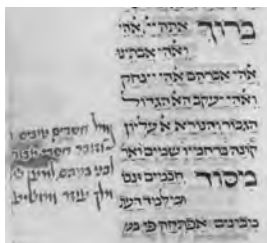 ברוך אתה יי אלהי
ואלהי אבתינו
אלהי אברהם אלהי יצחק
ואלהי יעקב האל הגדול
הגבור והנורא אל עליון
קונה ברחמיו שמים ואר
מיסוד חכמים ונבו
ומילמד דעת
מבינים אפתחה פי בש
גומל חסדים טובים ו
וזוכר חסדי אבות
לבני בניהם למען ש
מלך עוזר ומושיע